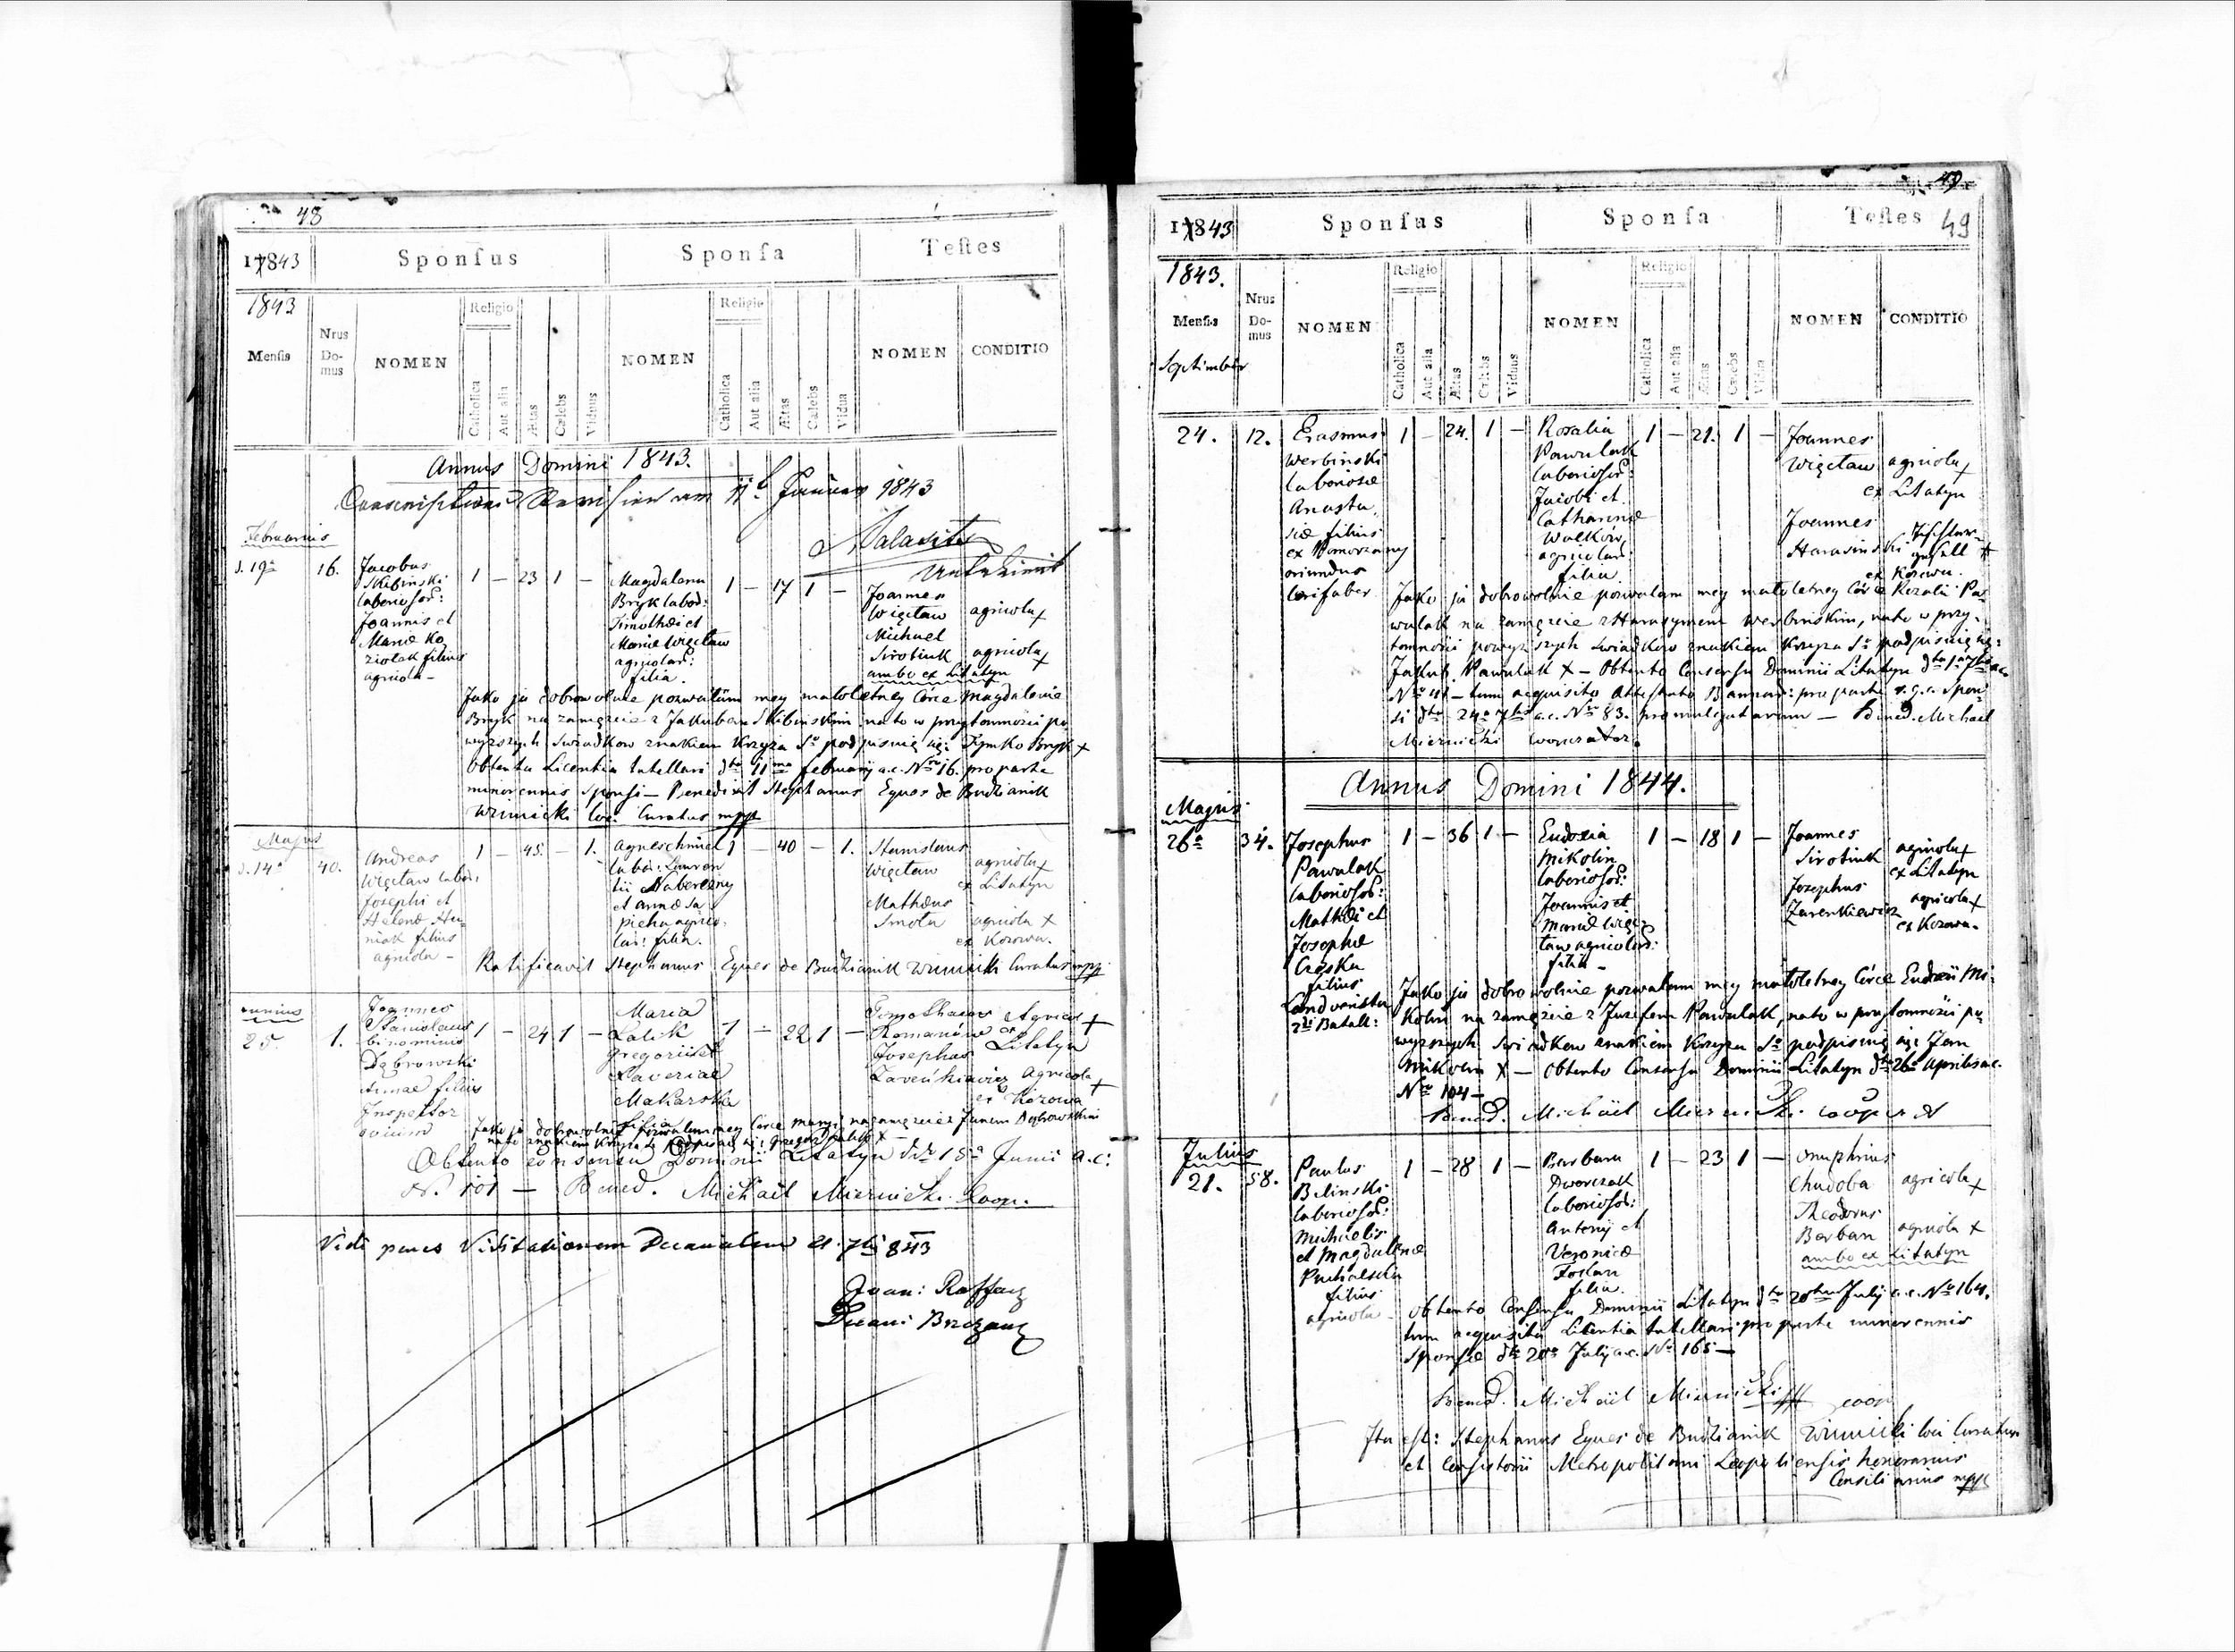 48
17843
Sponsus
Sponsa
Testes
1843
Mensis
Nrus Domus
NOMEN
Religio
Catholica
Aut alia
Ætas
Cælebs
Viduus
NOMEN
Religio
Catholica
Aut alia
Ætas
Cælebs
Vidua
NOMEN
CONDITIO
Annus Domini 1843.
Januar 1843
Februarius
d. 19a 16.
Jacobus
Skibinski
laborioss:
Joannis et
Mariæ Ko
ziołek filius
agricola -
1 - 23 1 -
Magdalena
Bryk labor:
Timothei et
Mariæ Więcław
agricolar:
filia.
1 - 17 1 -
Joannes
Więcław agricola +
Michael
Sirotiuk agricola +
ambo ex Litatyn
Jako ja dobrowolnie pozwalam mey małoletney Córce Magdalenie
Bryk na zamęzcie z Jakubem Skibinskim na to w przytomności po
wyzszych Swiadkow znakiem Krzyza So podpisuię się: Tymko Bryk +
Obtenta Licentia tutellari dto 11ma februarij a.c. Nro 16. pro parte
minorennis Sponsi - Benedixit Stephanus Eques de Budzianik
Winnicki loc. Curatus mpp
Majus
d. 14a 40.
Andreas
Więcław labor:
Josephi et
Helenæ Hu
niak filius
agricola -
1 - 45. - 1.
Agnes Chmiel
labor: Lauren
tii Nabereżny
et Annæ Sa
pieha agrico
lar: filia.
1 - 40 - 1.
Stanislaus
Więcław agricola +
ex Litatyn
Mathæus
Smola agricola +
ex Kozowa.
Ratificavit Stephanus Eques de Budzianik Winnicki Curatus mpp
Junius
25. 1.
Joannes
Stanislaus
binominis
Dąbrowski
Annae filius
Inspector
ovium
1 - 24 1 -
Maria
Lalik
Gregorii et
Xaveriae
Makarska
filia
1 - 22 1 -
Timotheus Agricol +
Romanów ex Litatyn
Josephus
Zareńkiewicz Agricola +
ex Kozowa
Jako ja dobrowolnie pozwalam mey Córce Maryi na zamęzcie z Janem Dąbrowskim
na to znakiem Krzyza S. podpisuię się: Grzegorz Lalik +
Obtento consensu Dominii Litatyn dto 15a Junii a.c:
N. 101 - Bened. Michaël Miernicki Coop.
Vidi penes Visitationem Decanalem 21. 7bri 843
Joan: Raffacz
Decan: Brzezan
49
49
17843
Sponsus
Sponsa
Testes
1843.
Mensis
Nrus Domus
NOMEN
Religio
Catholica
Aut alia
Ætas
Cælebs
Viduus
NOMEN
Religio
Catholica
Aut alia
Ætas
Cælebs
Vidua
NOMEN
CONDITIO
September
24. 12.
Erasmus
Werbinski
laboriosæ
Anasta
siæ filius
ex Pomorzany
oriundus
lorifaber
1 - 24. 1 -
Rosalia
Pawulak
laborioss:
Jacobi et
Catharinæ
Walków
agricolar:
filia
1 - 21. 1 -
Joannes
Więcław agricola +
ex Litatyn
Joannes
Harasinski
ex Kozowa.
Jako ja dobrowolnie pozwalam mey małoletney Córce Rozalii Pa
wulak na zamęzcie z Harasymem Werbinskim, na to w przy
tomności powyzszych Swiadkow znakiem Krzyza So podpisuię się:
Jakub Pawulak X - Obtento Consensu Dominii Litatyn dto 1a 7bris a.c.
No 41 - tum acquisito Attestato Bannor: pro parte r.g.c. Spon
si dto 24a 7bris a.c. Nro 83. promulgatarum - Bened. Michael
Miernicki cooperator.
Annus Domini 1844.
Majus
26a 34.
Josephus
Pawulak
laborioss:
Mathæi et
Josephæ
Czaska
filius
Landvérista
2di Batall:
1 - 36 1 -
Eudoxia
Mikolin
laborioss:
Joannis et
Mariæ Więc
ław agricolar:
filia -
1 - 18 1 -
Joannes
Sirotiuk agricola +
ex Litatyn
Josephus
Zarenkiewicz agricola +
ex Kozowa.
Jako ja dobrowolnie pozwalam mey małoletney Córce Eudoxii Mi
kolin na zamęzcie z Juzefem Pawulak, na to w przytomności po
wyzszych Swiadkow znakiem Krzyza So podpisuię się: Jan
Mikolin X - Obtento Consensu Dominii Litatyn dto 26a Aprilis a.c.
Nro 104 -
Bened. Michäel Miernicki cooper
Julius
21. 58.
Paulus
Bilinski
laborioss:
Michaelis
et Magdalenæ
Puchalska
filius
agricola -
1 - 28 1 -
Barbara
Dworczak
laborioss:
Antonij et
Veronicæ
Fostan
filia
1 - 23 1 -
Onuphrius
Chudoba agricola +
Theodorus
Barban agricola +
ambo ex Litatyn
Obtento Consensu Dominii Litatyn dto 20ma July a.c. No 164.
tum acquisita Licentia tutellari pro parte minorennis
Sponsæ dto 20a July a.c. No 165 -
Bened. Michaël Miernicki coop
Ita est: Stephanus Eques de Budzianik Winnicki loci Curatus
et Consistorii Metropolitani Leopoliensis honorarius
Consiliarius mpp